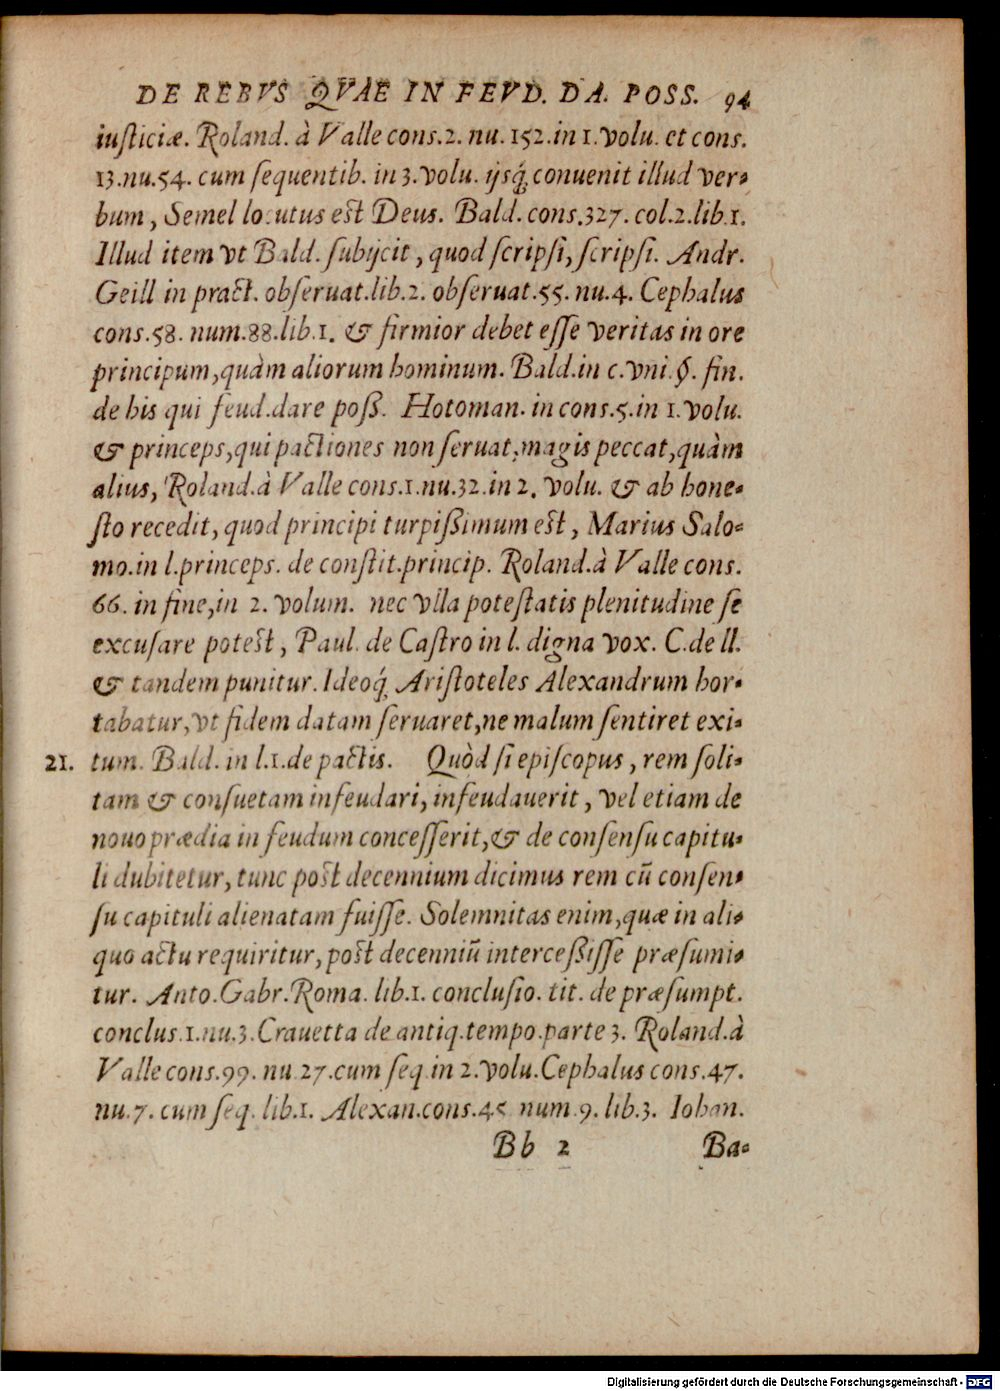 DE REBVS QVAE IN FEVD. DA. POSS. 94
iusticiæ. Roland. à Valle cons.2. nu. 152.in 1.volu. et cons.
13.nu.54. cum sequentib. in 3.volu. ijsq́; conuenit illud ver-
bum, Semel locutus est Deus. Bald. cons.327. col.2.lib.1.
Illud item vt Bald. subijcit, quod scripsi, scripsi. Andr.
Geill in pract. obseruat.lib.2. obseruat.55. nu.4. Cephalus
cons.58. num.88.lib.1. & firmior debet esse veritas in ore
principum,quàm aliorum hominum. Bald.in c.vni.§. fin.
de his qui feud.dare poß. Hotoman. in cons.5.in 1.volu.
& princeps,qui pactiones non seruat,magis peccat,quàm
alius, Roland.à Valle cons.1.nu.32.in 2. volu. & ab hone-
sto recedit, quod principi turpißimum est, Marius Salo-
mo.in l.princeps. de constit.princip. Roland.à Valle cons.
66. in fine,in 2. volum. nec vlla potestatis plenitudine se
excusare potest, Paul. de Castro in l. digna vox. C.de ll.
& tandem punitur. Ideoq́; Aristoteles Alexandrum hor-
tabatur,vt fidem datam seruaret,ne malum sentiret exi-
21. tum. Bald. in l.1.de pactis. Quòd si episcopus, rem soli-
tam & consuetam infeudari, infeudauerit, vel etiam de
nouo prædia in feudum concesserit,& de consensu capitu-
li dubitetur, tunc post decennium dicimus rem cū consen-
su capituli alienatam fuisse. Solemnitas enim,quæ in ali-
quo actu requiritur, post decenniū interceßisse præsumi-
tur. Anto.Gabr.Roma. lib.1. conclusio. tit. de præsumpt.
conclus.1.nu.3.Crauetta de antiq.tempo.parte 3. Roland.à
Valle cons.99. nu 27.cum seq.in 2.volu.Cephalus cons.47.
nu.7. cum seq. lib.1. Alexan.cons.45 num.9. lib.3. Iohan.
Bb 2 Ba-
Digitalisierung gefördert durch die Deutsche Forschungsgemeinschaft - DFG